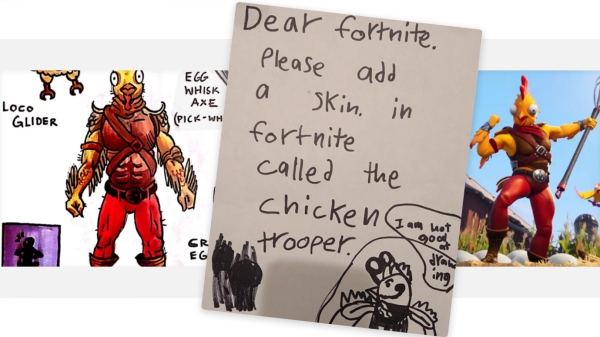 LOCO
GLIDER
EGG
WHISK
AXE
Dear fortnite.
Please add
a skin. in
fortnite
called the
chicken
trooper.
I am not
good
at
draw
ing